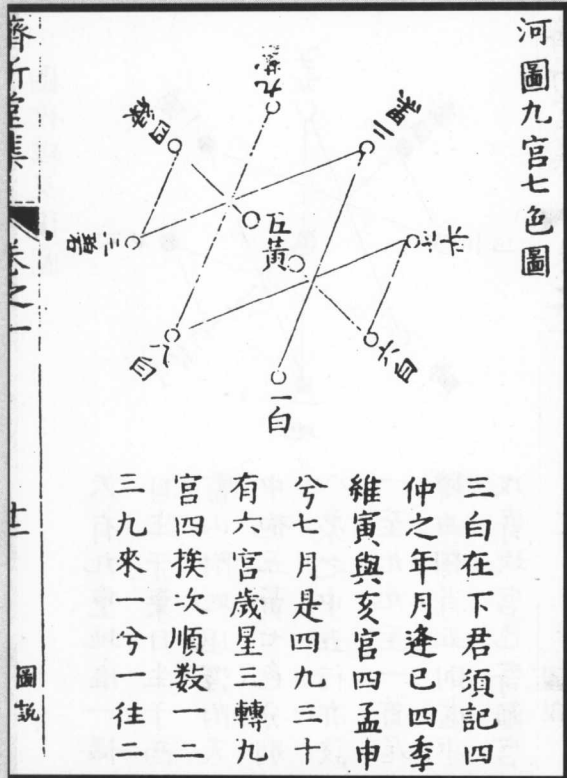 河圖九宮七色圖
九紫
四綠
二黑
三碧
五黃
七赤
八白
六白
一白
三白在下君須記四
仲之年月逢已四季
維寅與亥官四孟申
兮七月是四九三十
有六宮歲星一轉九
宮四挨次順数一二
三九來兮一往二
堂集 卷之一 圖說